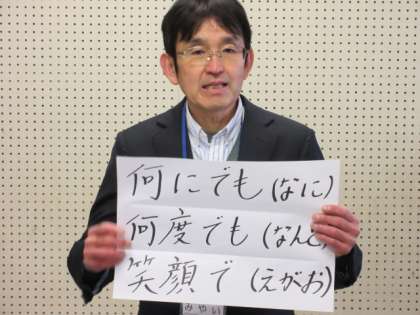 何にでも(なに)
何度でも(なんど
笑顔で(えがお)
みやい